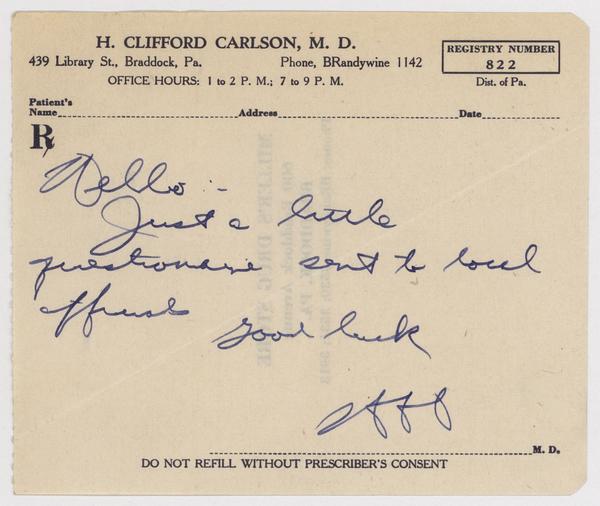 H. CLIFFORD CARLSON, M. D.
439 Library St., Braddock, Pa. Phone, BRandywine 1142
OFFICE HOURS: 1 to 2 P. M.; 7 to 9 P. M.
REGISTRY NUMBER
822
Dist. of Pa.
Patient's
Name Address Date
R
Hello -
Just a little
questionaire sent to local
Good luck
M. D.
DO NOT REFILL WITHOUT PRESCRIBER'S CONSENT